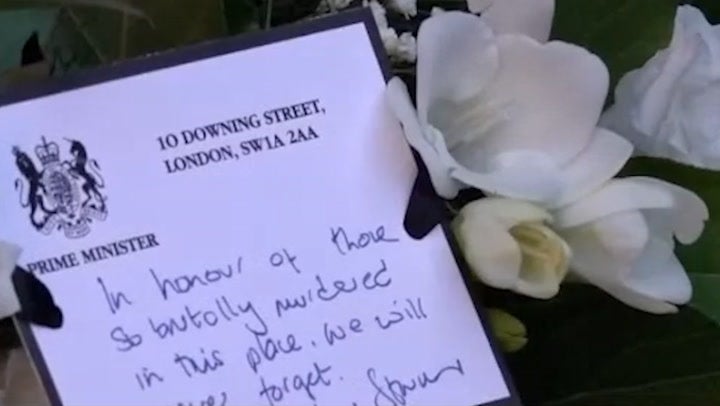 10 DOWNING STREET,
LONDON, SW1A 2AA
PRIME MINISTER
In honour of those
so brutally murdered
in this place. We will
forget.